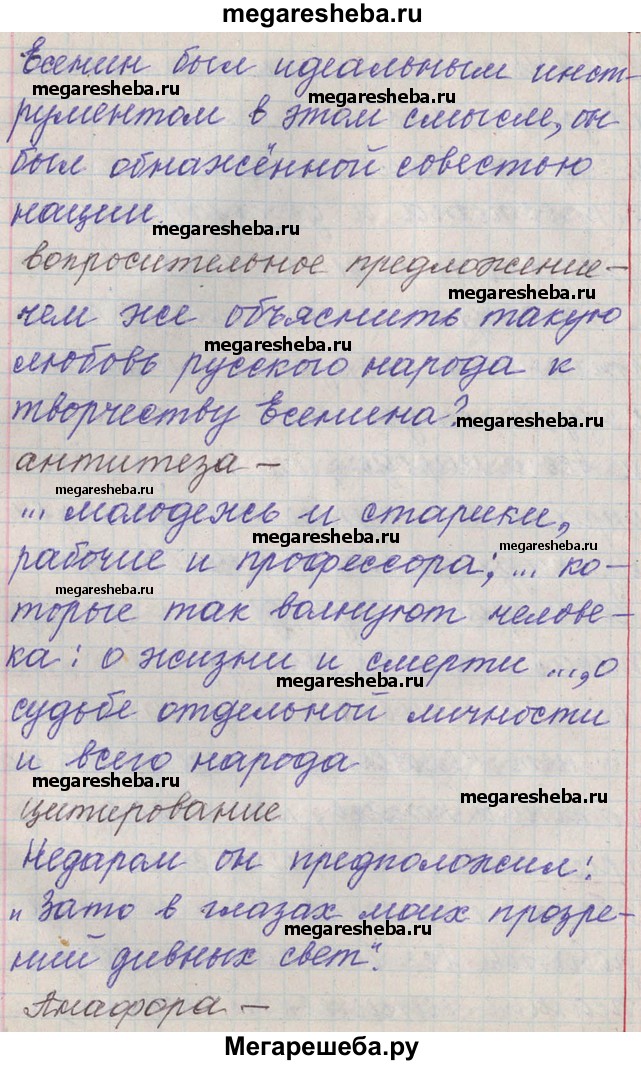 megaresheba.ru
Есенин был идеальным инст-
megaresheba.ru
megaresheba.ru
рументом в этом смысле, он
был обнажённой совестью
нации.
megaresheba.ru
вопросительное предложение –
megaresheba.ru
чем же объяснить такую
megaresheba.ru
любовь русского народа к
творчеству Есенина?
megaresheba.ru
антитеза –
megaresheba.ru
... молодежь и старики,
megaresheba.ru
megaresheba.ru
рабочие и профессора; ... ко-
megaresheba.ru
торые так волнуют челове-
ка: о жизни и смерти ..., о
megaresheba.ru
судьбе отдельной личности
и всего народа
megaresheba.ru
megaresheba.ru
цитирование
Недаром он предположил:
„Зато в глазах моих прозре-
megaresheba.ru
ний дивных свет“.
Анафора –
Мегарешеба.ру